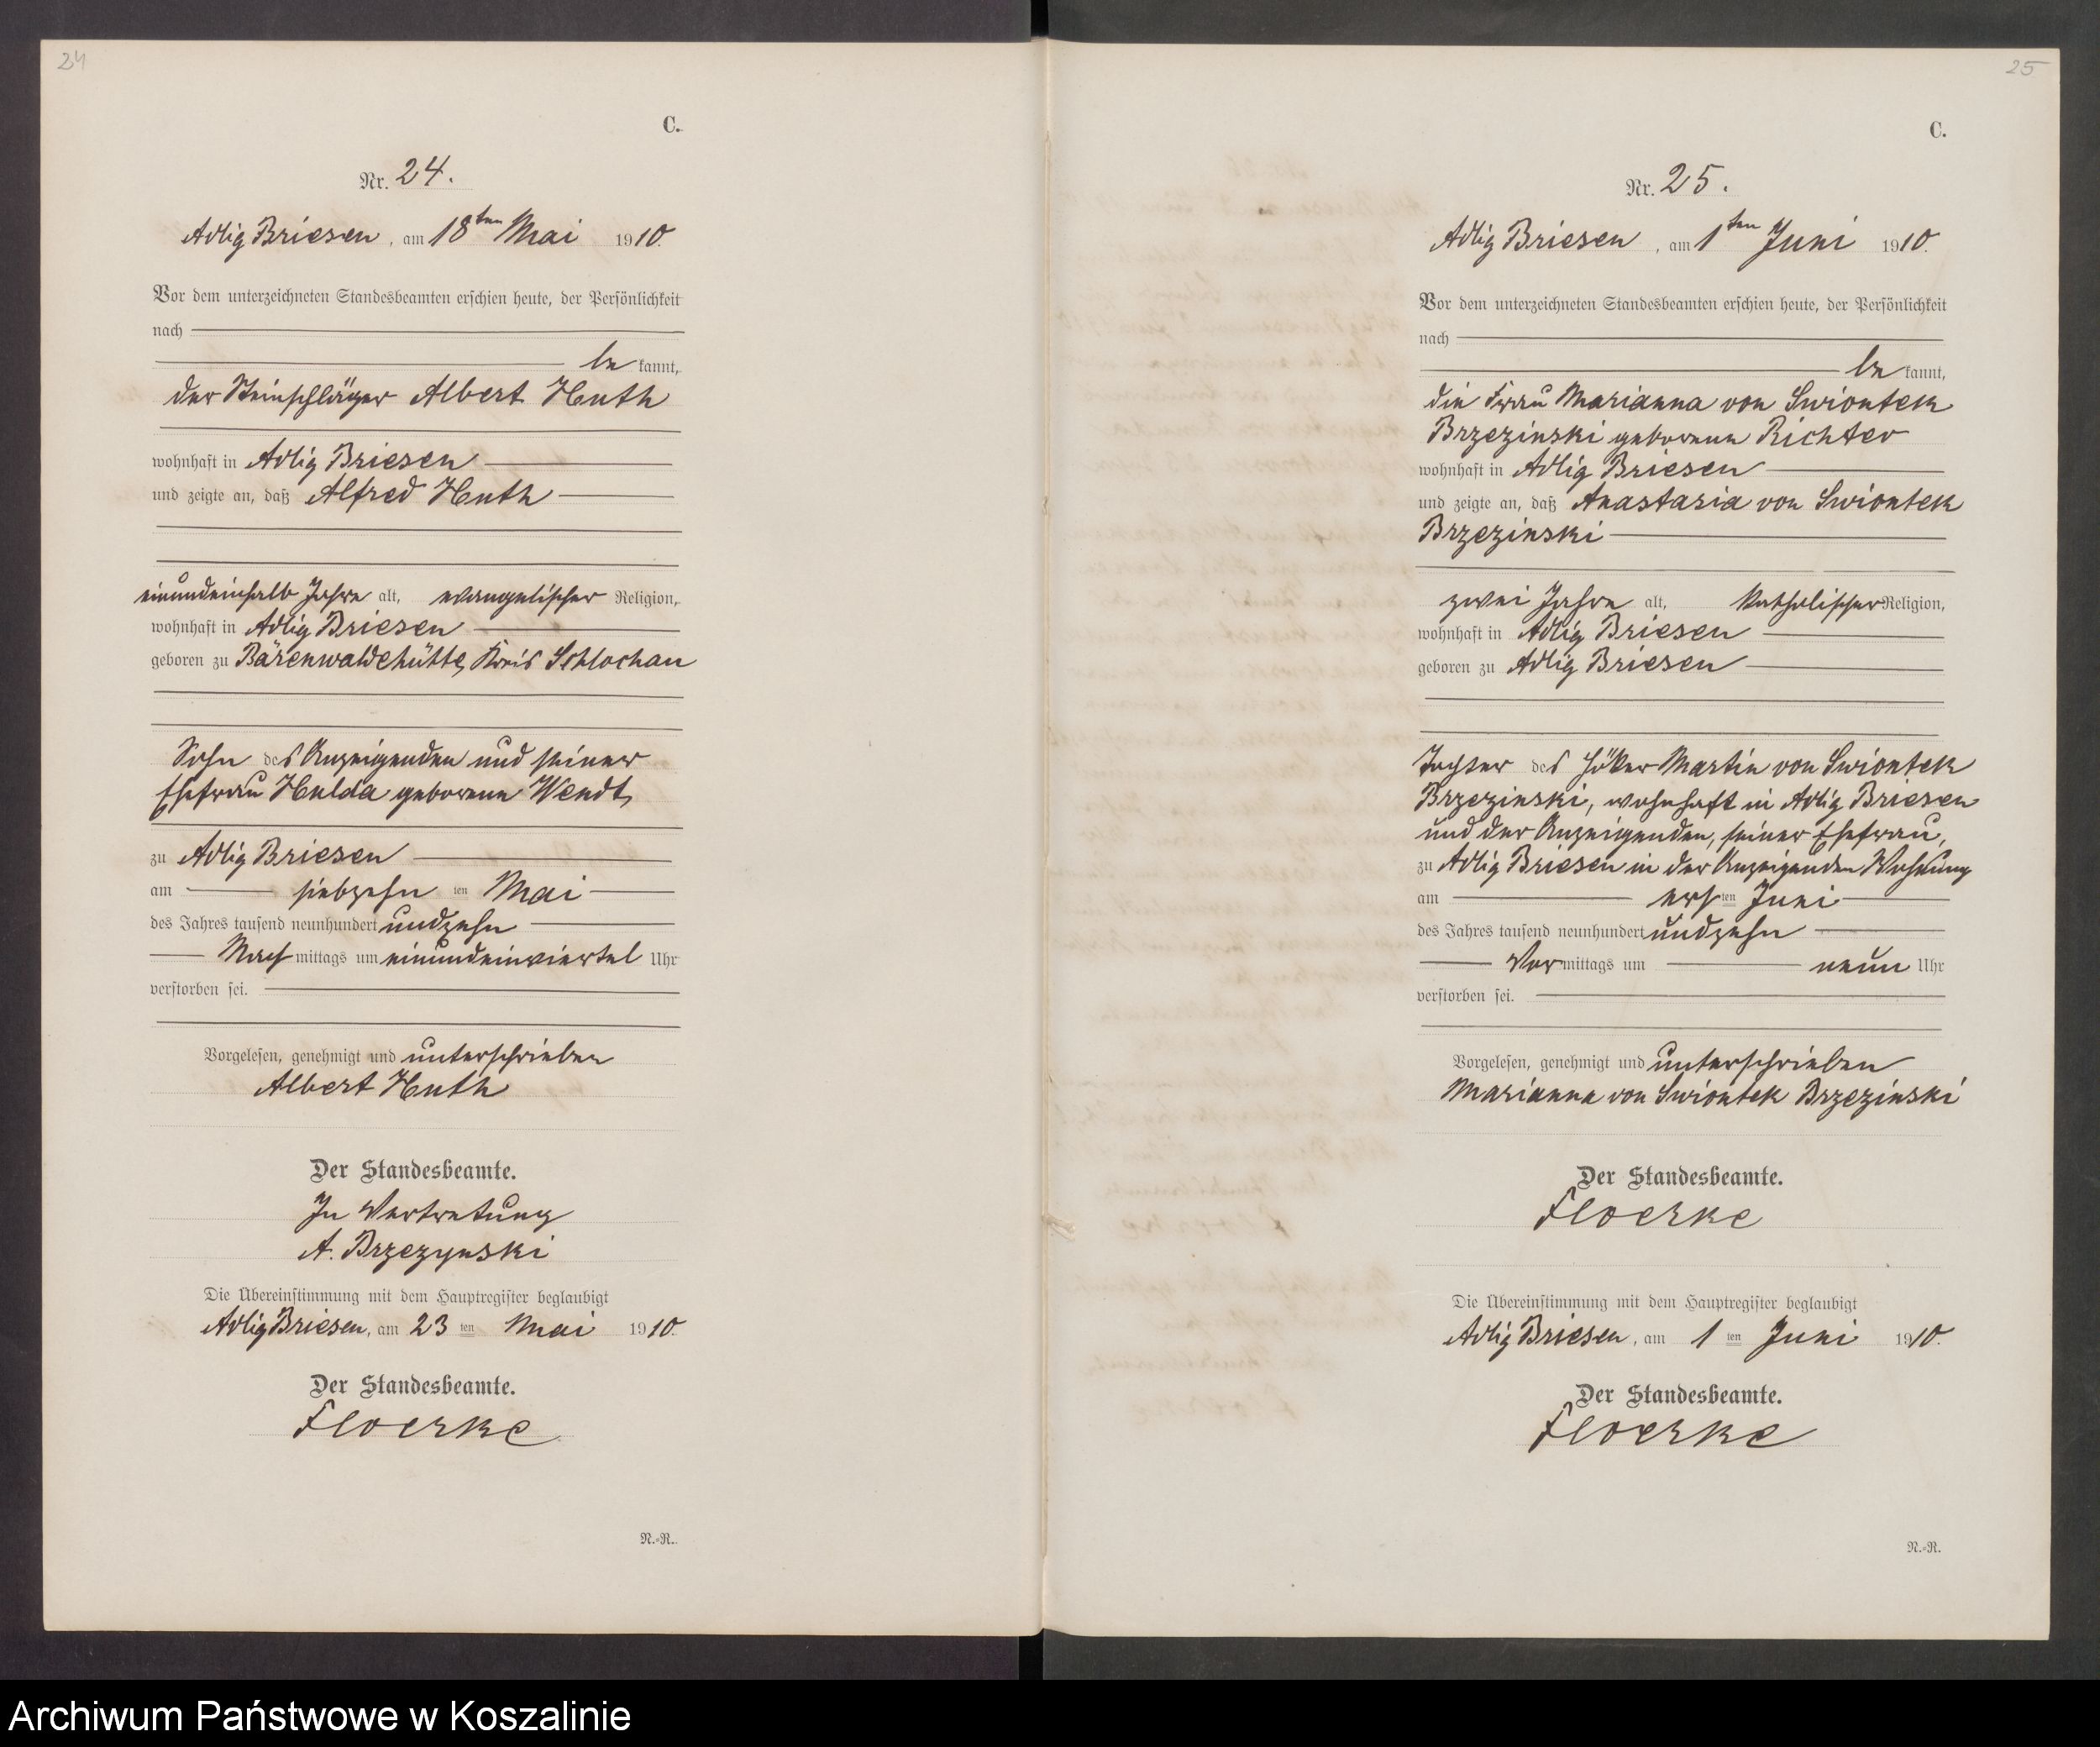 24
C.
Nr. 24.
Adlig Briesen, am 18ten Mai 1910.
Vor dem unterzeichneten Standesbeamten erschien heute, der Persönlichkeit
nach
be kannt,
der Steinschläger Albert Huth
wohnhaft in Adlig Briesen
und zeigte an, daß Alfred Huth
einundeinhalb Jahre alt, evangelischer Religion,
wohnhaft in Adlig Briesen
geboren zu Bärenwaldehütte, Kreis Schlochau
Sohn des Anzeigenden und seiner
Ehefrau Hulda geborene Wendt,
zu Adlig Briesen
am siebzehn ten Mai
des Jahres tausend neunhundert undzehn
Nach mittags um einundeinviertel Uhr
verstorben sei.
Vorgelesen, genehmigt und unterschrieben
Albert Huth
Der Standesbeamte.
In Vertretung
A. Brzezynski
Die Übereinstimmung mit dem Hauptregister beglaubigt
Adlig Briesen, am 23 ten Mai 1910.
Der Standesbeamte.
Floerke
N.-R.
25
C.
Nr. 25.
Adlig Briesen, am 1ten Juni 1910.
Vor dem unterzeichneten Standesbeamten erschien heute, der Persönlichkeit
nach
be kannt,
die Frau Marianna von Swiontek
Brzezinski geborene Richter
wohnhaft in Adlig Briesen
und zeigte an, daß Anastasia von Swiontek
Brzezinski
zwei Jahre alt, katholischer Religion,
wohnhaft in Adlig Briesen
geboren zu Adlig Briesen
Tochter des Höker Martin von Swiontek
Brzezinski, wohnhaft in Adlig Briesen
und der Anzeigenden, seiner Ehefrau,
zu Adlig Briesen in der Anzeigenden Wohnung
am ers ten Juni
des Jahres tausend neunhundert undzehn
Vor mittags um neun Uhr
verstorben sei.
Vorgelesen, genehmigt und unterschrieben
Marianna von Swiontek Brzezinski
Der Standesbeamte.
Floerke
Die Übereinstimmung mit dem Hauptregister beglaubigt
Adlig Briesen, am 1 ten Juni 1910.
Der Standesbeamte.
Floerke
N.-R.
Archiwum Państwowe w Koszalinie